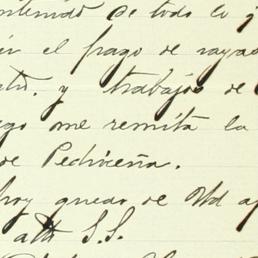 ntenido de todo lo q
el pago de rayas
y trabajos de
go me remita la
de Pedriceña.
hoy quedo de Ud af
att S.S.